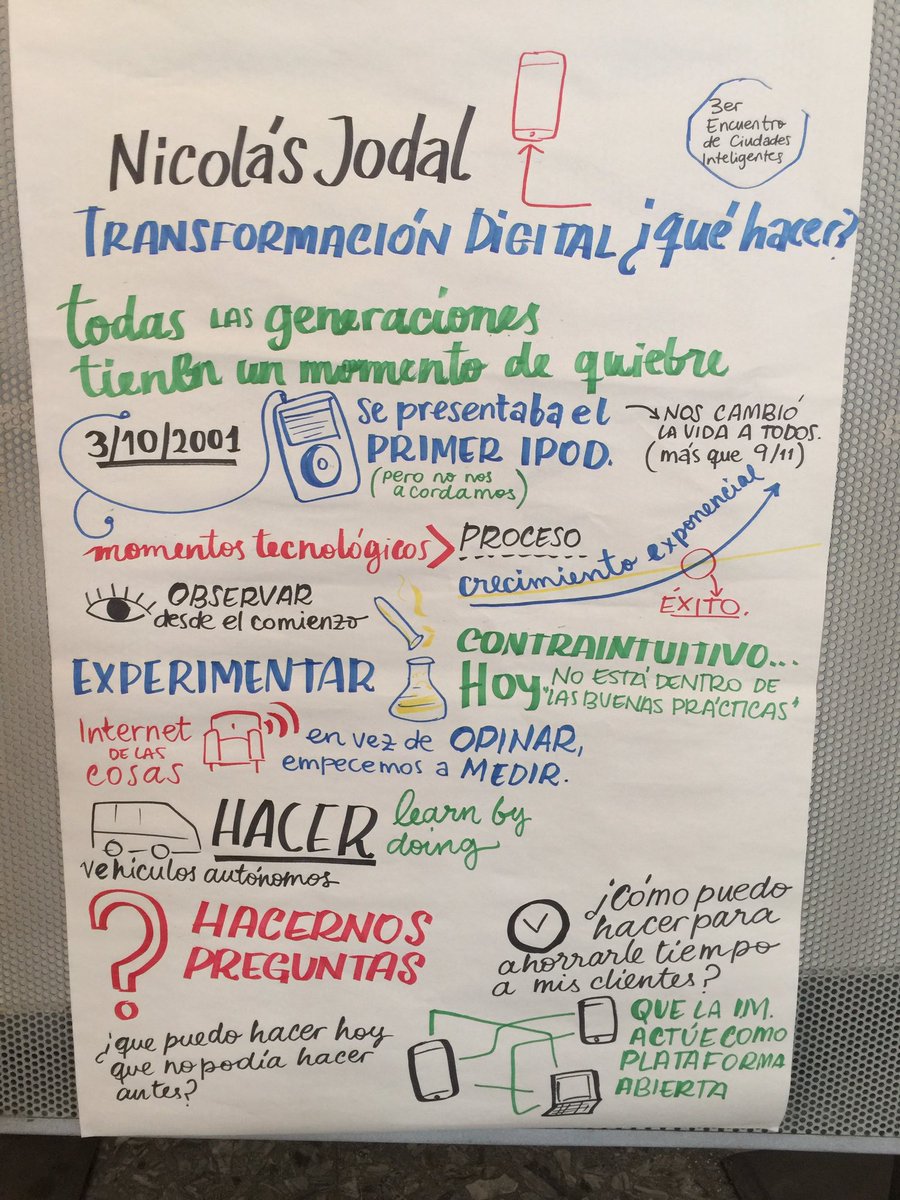 Nicolás Jodal
3er
Encuentro
de Ciudades
Inteligentes
TRANSFORMACIÓN DIGITAL ¿qué hacer?
todas LAS generaciones
tienen un momento de quiebre
3/10/2001
se presentaba el
PRIMER IPOD.
(pero no nos
acordamos)
NOS CAMBIÓ
LA VIDA A TODOS.
(más que 9/11)
momentos tecnológicos > PROCESO
crecimiento exponencial
ÉXITO.
OBSERVAR
desde el comienzo
EXPERIMENTAR
CONTRAINTUITIVO...
Hoy "NO ESTÁ DENTRO DE
LAS BUENAS PRÁCTICAS"
Internet
DE LAS
cosas
en vez de OPINAR,
empecemos a MEDIR.
vehículos autónomos
HACER
learn by
doing
? HACERNOS
PREGUNTAS
¿Cómo puedo
hacer para
ahorrarle tiempo
a mis clientes?
¿que puedo hacer hoy
que no podía hacer
antes?
QUE LA IM.
ACTÚE COMO
PLATAFORMA
ABIERTA